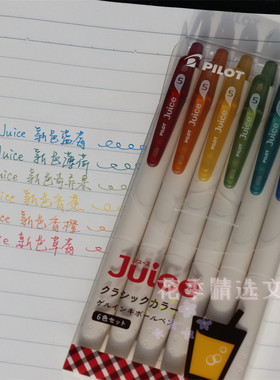 PILOT
5
5
5
5
PILOT Juice
PILOT Juice
PILOT Juice
PILOT Juice
Juice 新色
Juice 新色薄荷
Juice 新色青苹果
Juice 新色香
Juice 新色香橙
Juice 新色草莓
ジュース
Juice
クラシックカラー
ゲルインキボールペン
6色セット
精选文